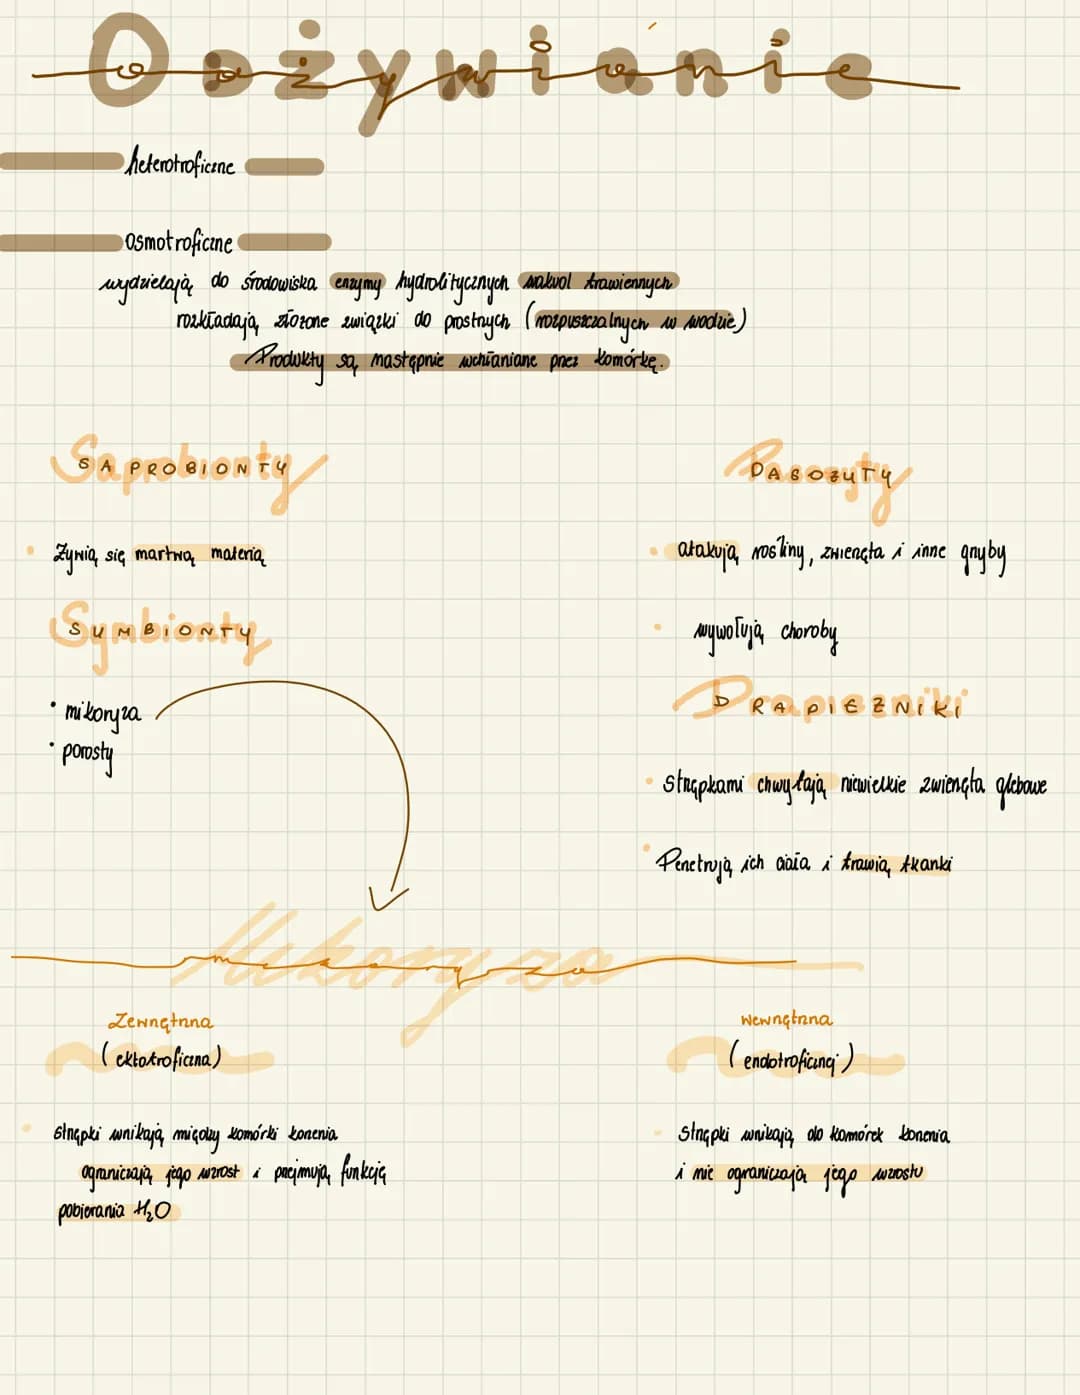 Odżywianie
heterotroficzne
osmotroficzne
wydzielają do środowiska enzymy hydrolitycznych wakuol trawiennych
rozkładają złożone związki do prostrzych (rozpuszczalnych w wodzie)
Produkty są następnie wchłaniane przez komórkę.
Saprobionty
Żywią się martwą materią
Symbionty
mikoryza
porosty
Pasożyty
atakują rośliny, zwierzęta i inne grzyby
wywołują choroby
Drapieżniki
Strzępkami chwytają niewielkie zwierzęta glebowe
Penetrują ich ciała i trawią tkanki
Mikoryza
Zewnętrzna
(ektotroficzna)
Strzępki wnikają między komórki korzenia
ograniczają jego wzrost i przejmują funkcję
pobierania H₂O
Wewnętrzna
(endotroficznej)
Strzępki wnikają do komórek korzenia
i nie ograniczają jego wzrostu